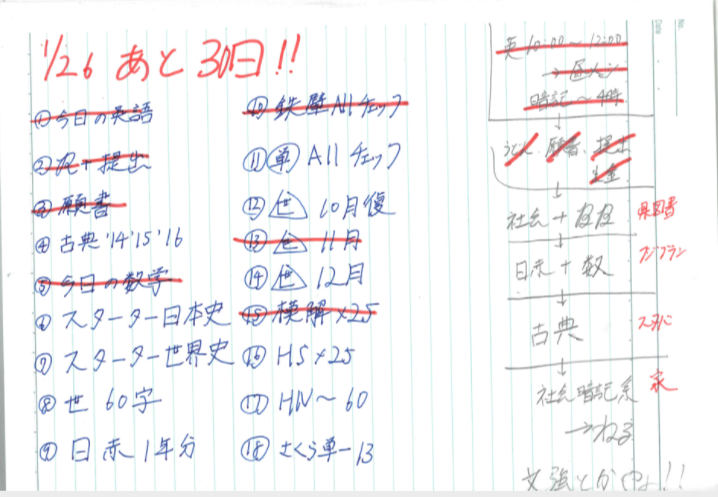 1/26 あと30日!!
① 今日の英語
② 死+提出
③ 願書
④ 古典'14'15'16
⑤ 今日の数学
⑥ スターター日本史
⑦ スターター世界史
⑧ 世 60字
⑨ 日赤1年分
⑩ 鉄壁Allチェック
⑪ 単 Allチェック
⑫ 世 10月復
⑬ 世 11月
⑭ 世 12月
⑮ 模解×25
⑯ HS×25
⑰ HN〜60
⑱ さくら単ー13
英 10:00〜12:00
暗記〜4時
↓
願書、提出
↓
社会+
県図書
↓
日赤+数
↓
古典
スタバ
↓
社会暗記系
家
→ねる
No.
Date